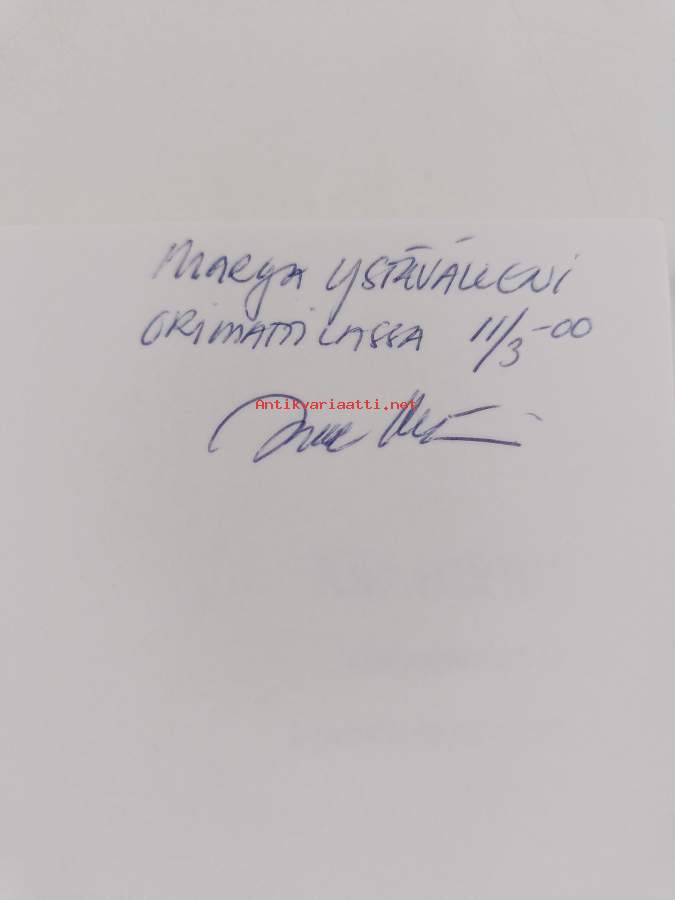 Marja YSTÄVÄLLENI
ORIMATTILASSA 11/3-00
Antikvariaatti.net